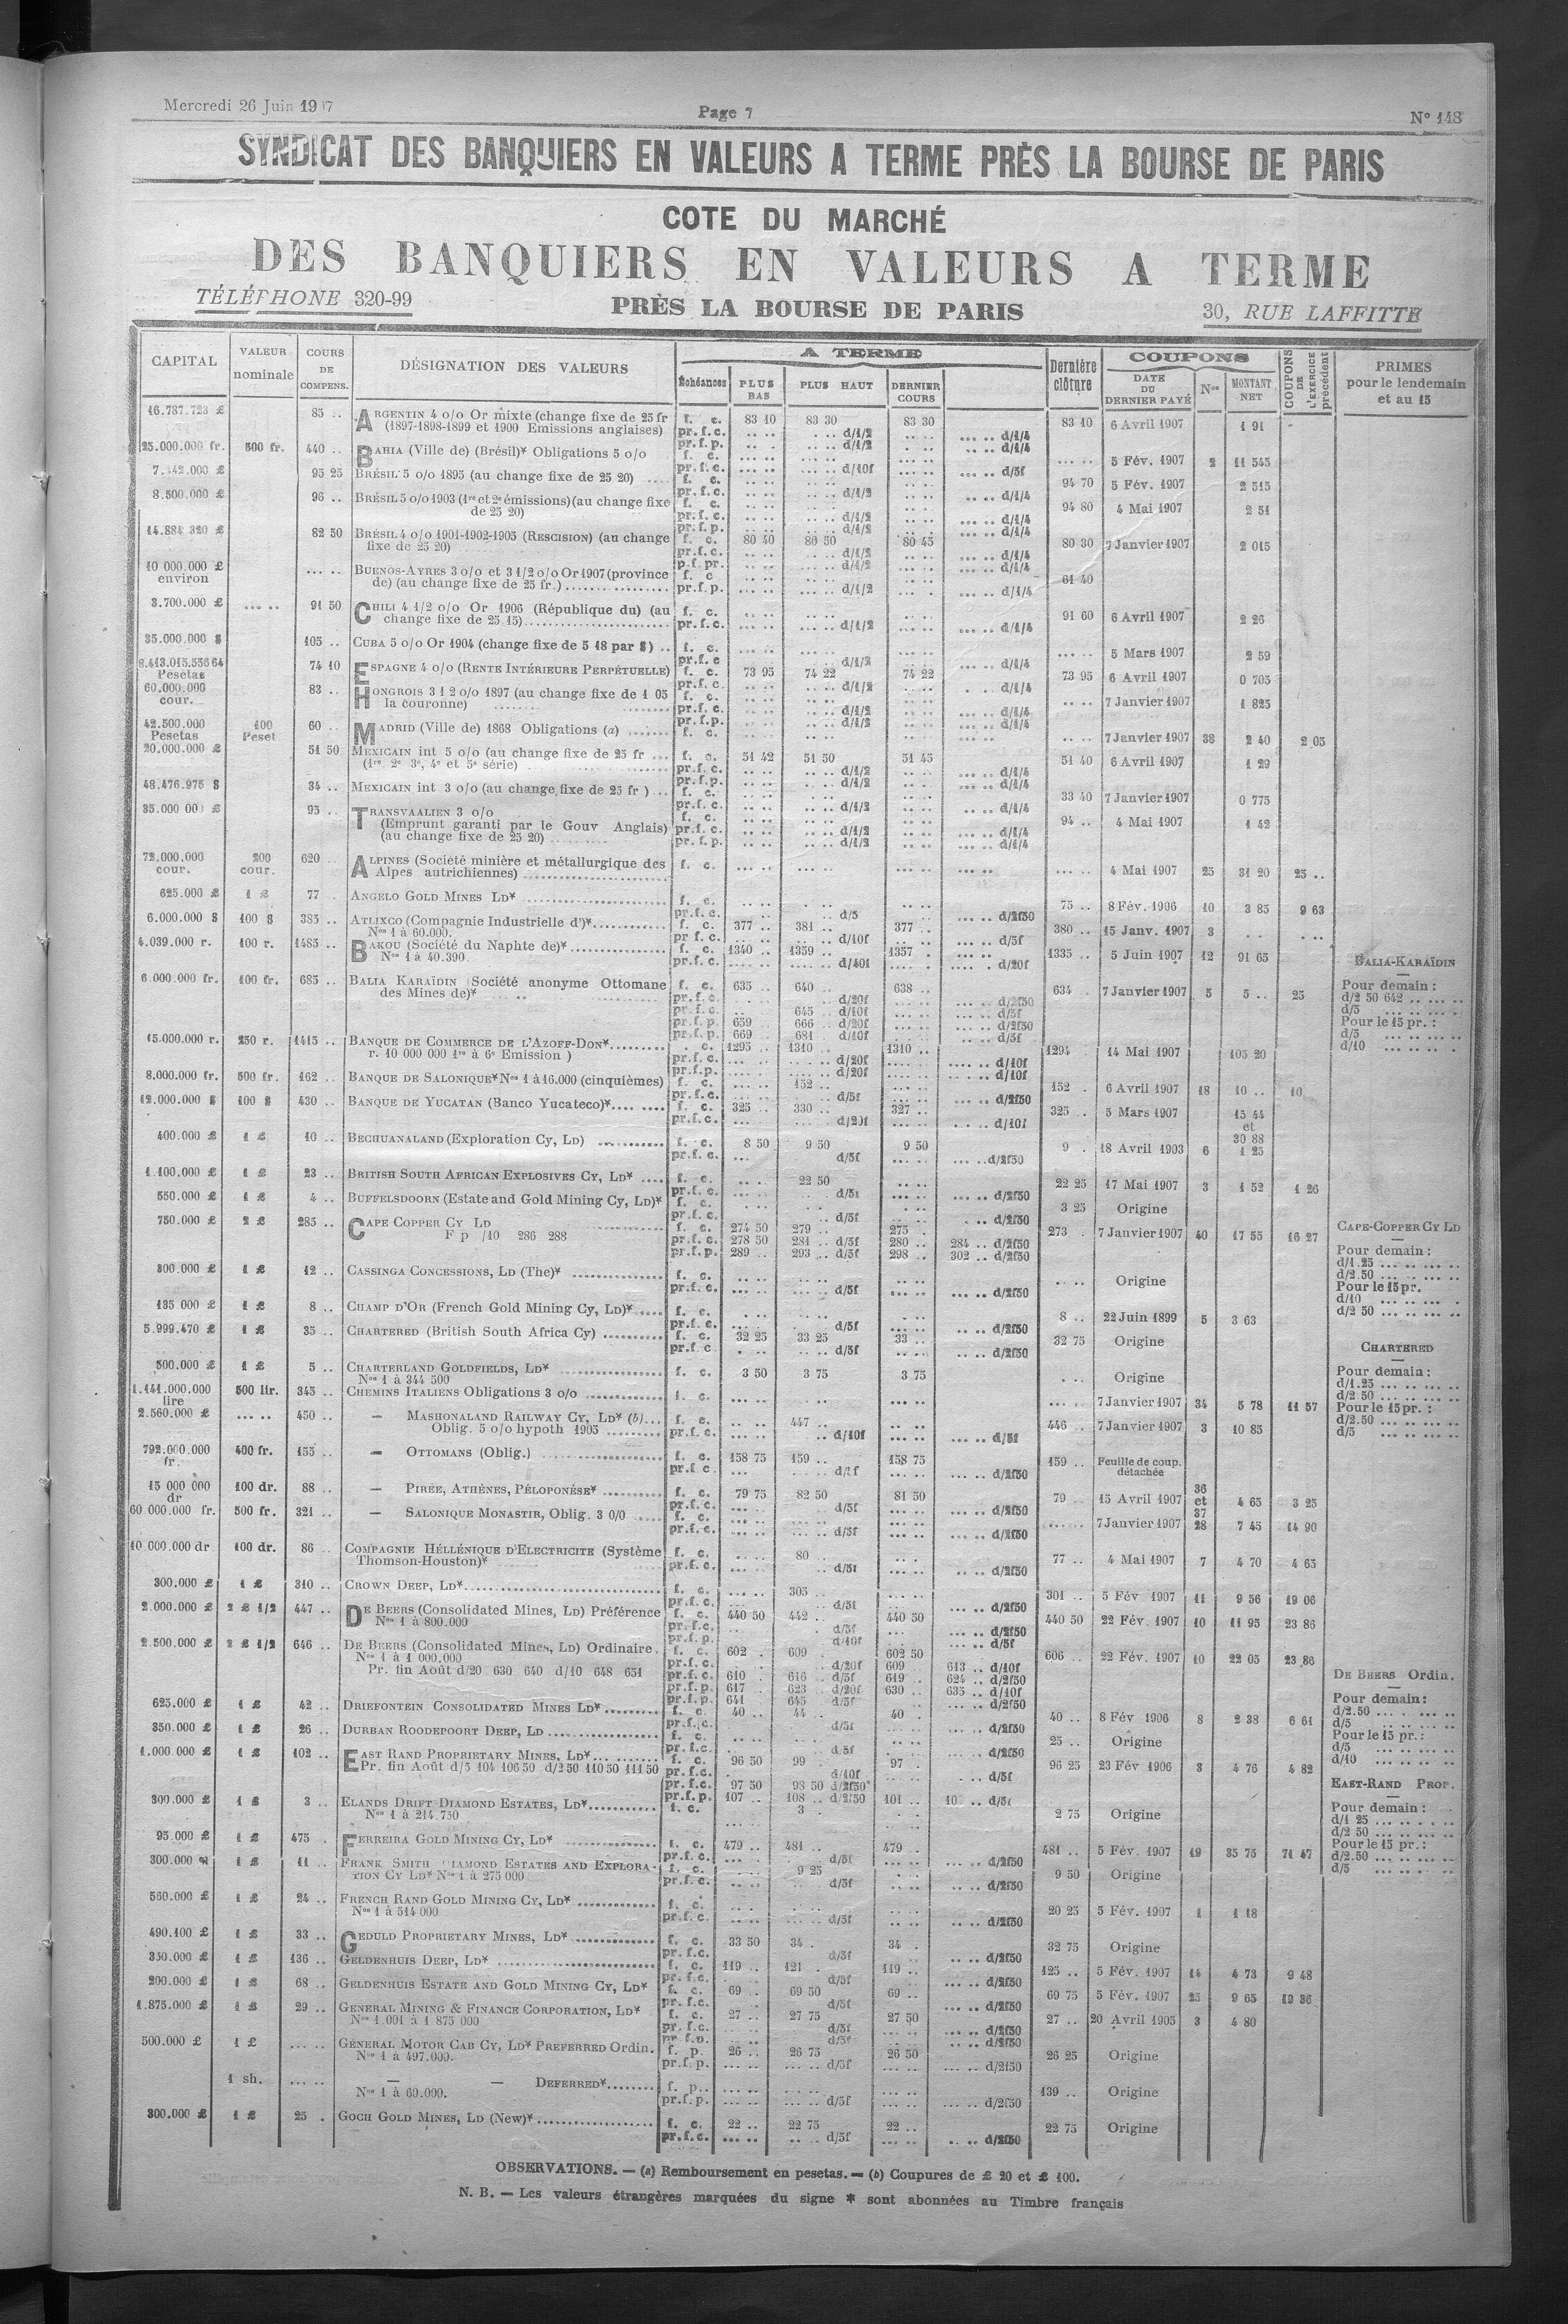 Mercredi 26 Juin 19 7
Page 7
N° 148
SYNDICAT DES BANQUIERS EN VALEURS A TERME PRÈS LA BOURSE DE PARIS
COTE DU MARCHÉ
DES BANQUIERS EN VALEURS A TERME
TÉLÉPHONE 320-99
PRÈS LA BOURSE DE PARIS
30, RUE LAFFITTE
CAPITAL
VALEUR nominale
COURS DE COMPENS.
DÉSIGNATION DES VALEURS
A TERME
Échéances
PLUS BAS
PLUS HAUT
DERNIER COURS
Dernière clôture
COUPONS
DATE DU DERNIER PAYÉ
Nos
MONTANT NET
COUPONS DE L'EXERCICE précédent
PRIMES pour le lendemain et au 15
46.787.723 £ 85 .. ARGENTIN 4 o/o Or mixte (change fixe de 25 fr f. c. 83 10 83 30 83 30 83 10 6 Avril 1907 1 91
(1897-1898-1899 et 1900 Emissions anglaises) pr.f.c. .. .. d/1/2 d/1/4
25.000.000 fr. 500 fr. 440 .. BAHIA (Ville de) (Brésil)* Obligations 5 o/o f. c. 5 Fév. 1907 2 11 545
7.442.000 £ 95 25 BRÉSIL 5 o/o 1895 (au change fixe de 25 20) f. c. 94 70 5 Fév. 1907 2 515
8.500.000 £ 96 .. BRÉSIL 5 o/o 1903 (1re et 2e émissions) (au change fixe f. c. 94 80 4 Mai 1907 2 51
de 25 20)
14.884 320 £ 82 50 BRÉSIL 4 o/o 1901-1902-1905 (RESCISION) (au change f. c. 80 40 80 50 80 45 80 30 7 Janvier 1907 2 015
fixe de 25 20)
10 000.000 £ environ ... .. BUENOS-AYRES 3 o/o et 3 1/2 o/o Or 1907 (province f. c 61 40
de) (au change fixe de 25 fr.) pr.f.p. d/1/2 d/1/4
3.700.000 £ ... .. 91 50 CHILI 4 1/2 o/o Or 1906 (République du) (au f. c. 91 60 6 Avril 1907 2 26
change fixe de 25 15) pr.f.c. d/1/2 d/1/4
35.000.000 $ 105 .. CUBA 5 o/o Or 1904 (change fixe de 5 18 par $) .. f. c. 5 Mars 1907 2 59
8.413.015.536 64 Pesetas 74 10 ESPAGNE 4 o/o (RENTE INTÉRIEURE PERPÉTUELLE) f. c. 73 95 74 22 74 22 73 95 6 Avril 1907 0 705
60.000.000 cour. 83 .. HONGROIS 3 1 2 o/o 1897 (au change fixe de 1 05 f. c. 7 Janvier 1907 1 825
la couronne)
42.500.000 Pesetas 100 Peset 60 .. MADRID (Ville de) 1868 Obligations (a) f. c. 7 Janvier 1907 38 2 40 2 05
20.000.000 £ 51 50 MEXICAIN int 5 o/o (au change fixe de 25 fr ... f. c. 51 42 51 50 51 45 51 40 6 Avril 1907 1 29
(1re 2e 3e, 4e et 5e série)
48.476.975 $ 34 .. MEXICAIN int 3 o/o (au change fixe de 25 fr ) ... f. c. 33 40 7 Janvier 1907 0 775
35.000 00 £ 95 .. TRANSVAALIEN 3 o/o f. c. 94 .. 4 Mai 1907 1 42
(Emprunt garanti par le Gouv Anglais) pr.f.c. d/1/2 d/1/4
(au change fixe de 25 20) pr.f.p. d/1/2 d/1/4
72.000.000 cour. 200 cour. 620 .. ALPINES (Société minière et métallurgique des f. c. 4 Mai 1907 25 31 20 25 ..
Alpes autrichiennes)
625.000 £ 1 £ 77 ANGELO GOLD MINES LD* f. c. 75 .. 8 Fév. 1906 10 3 85 9 63
6.000.000 $ 100 $ 385 .. ATLIXCO (Compagnie Industrielle d')* f. c. 377 .. 381 .. 377 .. 380 .. 15 Janv. 1907 3
Nos 1 à 60.000. pr f.c. d/10f d/5f
4.039.000 r. 100 r. 1485 .. BAKOU (Société du Naphte de)* f. c. 1340 .. 1359 .. 1357 . 1335 .. 5 Juin 1907 12 91 65
Nos 1 à 40.390. pr.f.c. d/40f d/20f
6.000.000 fr. 100 fr. 685 .. BALIA KARAÏDIN (Société anonyme Ottomane f. c. 635 .. 640 .. 638 .. 634 . 7 Janvier 1907 5 5 .. 25
des Mines de)* pr.f.c. d/20f d/2f50
pr.f.c. 645 .. d/10f d/5f
pr.f.p. 659 666 .. d/20f d/2f50
pr.f.p. 669 681 .. d/10f d/5f
15.000.000 r. 250 r. 1415 .. BANQUE DE COMMERCE DE L'AZOFF-DON* c. 1295 .. 1310 .. 1310 .. 1294 . 14 Mai 1907 105 20
r. 10 000 000 1re à 6e Emission ) pr.f.c. d/20f d/10f
8.000.000 fr. 500 fr. 162 .. BANQUE DE SALONIQUE* Nos 1 à 16.000 (cinquièmes) f. c. 152 .. 152 . 6 Avril 1907 18 10 .. 10
12.000.000 $ 100 $ 430 .. BANQUE DE YUCATAN (Banco Yucateco)* f. c. 325 .. 330 .. 327 .. 325 .. 5 Mars 1907 15 44 et 30 88
400.000 £ 1 £ 10 .. BECHUANALAND (Exploration Cy, LD) f. c. 8 50 9 50 9 50 9 . 18 Avril 1903 6 1 25
1.100.000 £ 1 £ 23 .. BRITISH SOUTH AFRICAN EXPLOSIVES CY, LD* f. c. 22 50 22 25 17 Mai 1907 3 1 52 1 26
550.000 £ 1 £ 4 .. BUFFELSDOORN (Estate and Gold Mining Cy, LD)* f. c. 3 25 Origine
750.000 £ 2 £ 285 .. CAPE COPPER CY LD f. c. 274 50 279 .. 275 . 273 . 7 Janvier 1907 40 17 55 16 27
F p /10 286 288 pr.f.c. 278 50 281 .. d/5f 280 .. 284 .. d/2f50
pr.f.p. 289 .. 293 .. d/5f 298 .. 302 .. d/2f50
300.000 £ 1 £ 12 .. CASSINGA CONCESSIONS, LD (The)* f. c. Origine
135 000 £ 1 £ 8 .. CHAMP D'OR (French Gold Mining Cy, LD)* f. c. 8 .. 22 Juin 1899 5 3 63
5.999.470 £ 1 £ 35 .. CHARTERED (British South Africa Cy) f. c. 32 25 33 25 33 .. 32 75 Origine
500.000 £ 1 £ 5 .. CHARTERLAND GOLDFIELDS, LD* f. c. 3 50 3 75 3 75 Origine
Nos 1 à 344 500
1.141.000.000 lire 500 lir. 345 .. CHEMINS ITALIENS Obligations 3 o/o f. c. 7 Janvier 1907 34 5 78 11 57
2.560.000 £ ... .. 450 .. — MASHONALAND RAILWAY CY, LD* (b) f. c. 447 .. 446 .. 7 Janvier 1907 3 10 85
Oblig. 5 o/o hypoth 1905 pr.f.c. d/10f d/5f
792.000.000 fr. 400 fr. 155 .. — OTTOMANS (Oblig.) f. c. 158 75 159 .. 158 75 159 .. Feuille de coup. détachée
15 000 000 dr 100 dr. 88 .. — PIRÉE, ATHÈNES, PÉLOPONÈSE* f. c. 79 75 82 50 81 50 79 .. 15 Avril 1907 36 et 37 4 65 3 25
60 000.000 fr. 500 fr. 321 .. — SALONIQUE MONASTIR, Oblig. 3 0/0 f. c. 7 Janvier 1907 28 7 45 14 90
10 000.000 dr 100 dr. 86 .. COMPAGNIE HÉLLÉNIQUE D'ELECTRICITE (Système f. c. 80 77 .. 4 Mai 1907 7 4 70 4 65
Thomson-Houston)*
300.000 £ 1 £ 310 .. CROWN DEEP, LD* f. c. 305 .. 301 .. 5 Fév 1907 11 9 56 19 06
2.000.000 £ 2 £ 1/2 447 .. DE BEERS (Consolidated Mines, LD) Préférence f. c. 440 50 442 .. 440 50 440 50 22 Fév. 1907 10 11 95 23 86
Nos 1 à 800.000
2.500.000 £ 2 £ 1/2 646 .. DE BEERS (Consolidated Mines, LD) Ordinaire f. c. 602 . 609 602 50 606 .. 22 Fév. 1907 10 22 05 23 86
Nos 1 à 1 000.000 pr.f.c. d/20f 609 613 .. d/10f
Pr. fin Août d/20 630 640 d/10 648 651 pr.f.c. 610 616 .. d/5f 619 .. 624 .. d/2f50
pr.f.p. 617 .. 623 .. d/20f 630 .. 635 .. d/10f
pr.f.p. 641 645 .. d/5f d/2f50
625.000 £ 1 £ 42 .. DRIEFONTEIN CONSOLIDATED MINES LD* f. c. 40 .. 44 .. 40 . 40 .. 8 Fév 1906 8 2 38 6 61
350.000 £ 1 £ 26 .. DURBAN ROODEPOORT DEEP, LD f. c. 25 .. Origine
1.000 000 £ 1 £ 102 .. EAST RAND PROPRIETARY MINES, LD* f. c. 96 50 99 . 97 . 96 25 23 Fév 1906 3 4 76 4 82
Pr. fin Août d/5 104 106 50 d/2 50 110 50 111 50 pr.f.c. d/10f d/5f
pr.f.c. 97 50 98 50 d/2f50
pr.f.p. 107 .. 108 .. d/2f50 101 .. 10 .. d/5f
300.000 £ 1 £ 3 .. ELANDS DRIFT DIAMOND ESTATES, LD* f. c. 3 . 2 75 Origine
Nos 1 à 214.750
95.000 £ 1 £ 475 . FERREIRA GOLD MINING CY, LD* f. c. 479 .. 481 .. 479 . 481 .. 5 Fév. 1907 19 35 75 71 47
300.000 1 £ 11 .. FRANK SMITH DIAMOND ESTATES AND EXPLORA- f. c. 9 25 9 50 Origine
TION CY LD* Nos 1 à 275 000
560.000 £ 1 £ 24 .. FRENCH RAND GOLD MINING CY, LD* f. c. 20 25 5 Fév. 1907 1 1 18
Nos 1 à 514 000
490.100 £ 1 £ 33 .. GEDULD PROPRIETARY MINES, LD* f. c. 33 50 34 . 34 . 32 75 Origine
350.000 £ 1 £ 136 .. GELDENHUIS DEEP, LD* f. c. 119 .. 121 . 119 .. 125 .. 5 Fév. 1907 14 4 73 9 48
200.000 £ 1 £ 68 .. GELDENHUIS ESTATE AND GOLD MINING CY, LD* f. c. 69 .. 69 50 69 .. 69 75 5 Fév. 1907 25 9 65 19 36
1.875.000 £ 1 £ 29 .. GENERAL MINING & FINANCE CORPORATION, LD* f. c. 27 .. 27 75 27 50 27 .. 20 Avril 1905 3 4 80
Nos 1.001 à 1 875 000
500.000 £ 1 £ ... .. GÉNERAL MOTOR CAB CY, LD* PREFERRED Ordin. f. p. 26 .. 26 75 26 50 26 25 Origine
Nos 1 à 497.000. pr.f.p. d/5f d/2f50
1 sh. ... .. — — DEFERRED* f. p.. 139 .. Origine
Nos 1 à 60.000. pr.f.p. d/5f d/2f50
300.000 £ 1 £ 25 . GOCH GOLD MINES, LD (New)* f. c. 22 .. 22 75 22 .. 22 75 Origine
pr.f.c. ... .. d/5f d/2f50
BALIA-KARAÏDIN
Pour demain :
d/2 50 642 ..
d/5
Pour le 15 pr. :
d/5
d/10
CAPE-COPPER CY LD
Pour demain :
d/1.25
d/2.50
Pour le 15 pr.
d/10
d/2 50
CHARTERED
Pour demain :
d/1.25
d/2 50
Pour le 15 pr. :
d/2.50
d/5
DE BEERS Ordin.
Pour demain :
d/2.50
d/5
Pour le 15 pr. :
d/5
d/10
EAST-RAND PROP.
Pour demain :
d/1 25
d/2 50
Pour le 15 pr. :
d/2.50
d/5
OBSERVATIONS. — (a) Remboursement en pesetas. — (b) Coupures de £ 20 et £ 100.
N. B. — Les valeurs étrangères marquées du signe * sont abonnées au Timbre français